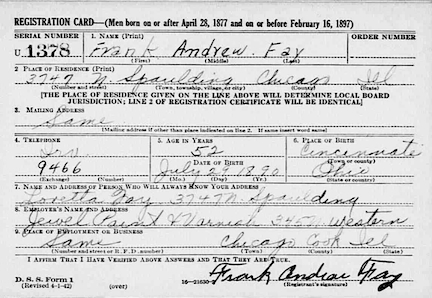 REGISTRATION CARD—(Men born on or after April 28, 1877 and on or before February 16, 1897)
SERIAL NUMBER 1. NAME (Print) ORDER NUMBER
U. 1378 Frank Andrew Fay
(First) (Middle) (Last)
2. PLACE OF RESIDENCE (Print)
3747 N. Spaulding Chicago Ill
(Number and street) (Town, township, village, or city) (County) (State)
[THE PLACE OF RESIDENCE GIVEN ON THE LINE ABOVE WILL DETERMINE LOCAL BOARD
JURISDICTION; LINE 2 OF REGISTRATION CERTIFICATE WILL BE IDENTICAL]
3. MAILING ADDRESS
Same
[Mailing address if other than place indicated on line 2. If same insert word same]
4. TELEPHONE 5. AGE IN YEARS 6. PLACE OF BIRTH
Irv 52 Cincinnati
DATE OF BIRTH (Town or county)
9466 July 29 1890 Ohio
(Exchange) (Number) (Mo.) (Day) (Yr.) (State or country)
7. NAME AND ADDRESS OF PERSON WHO WILL ALWAYS KNOW YOUR ADDRESS
Loretta Fay 3747 N. Spaulding
8. EMPLOYER'S NAME AND ADDRESS
Jewel Paint & Varnish 345 N. Western
9. PLACE OF EMPLOYMENT OR BUSINESS
Same Chicago Cook Ill
(Number and street or R. F. D. number) (Town) (County) (State)
I AFFIRM THAT I HAVE VERIFIED ABOVE ANSWERS AND THAT THEY ARE TRUE.
D. S. S. Form 1
(Revised 4-1-42) (over) 16—21630 Frank Andrew Fay
(Registrant's signature)